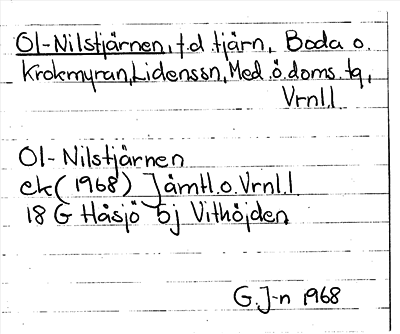 Ol-Nilstjärnen, f.d. tjärn, Boda o.
Krokmyran, Lidenssn, Med. ö. doms. tg,
Vrnl.l
Ol-Nilstjärnen
ek (1968) Jämtl. o. Vrnl.l
18 G Håsjö 5j Vithöjden
G.J-n 1968